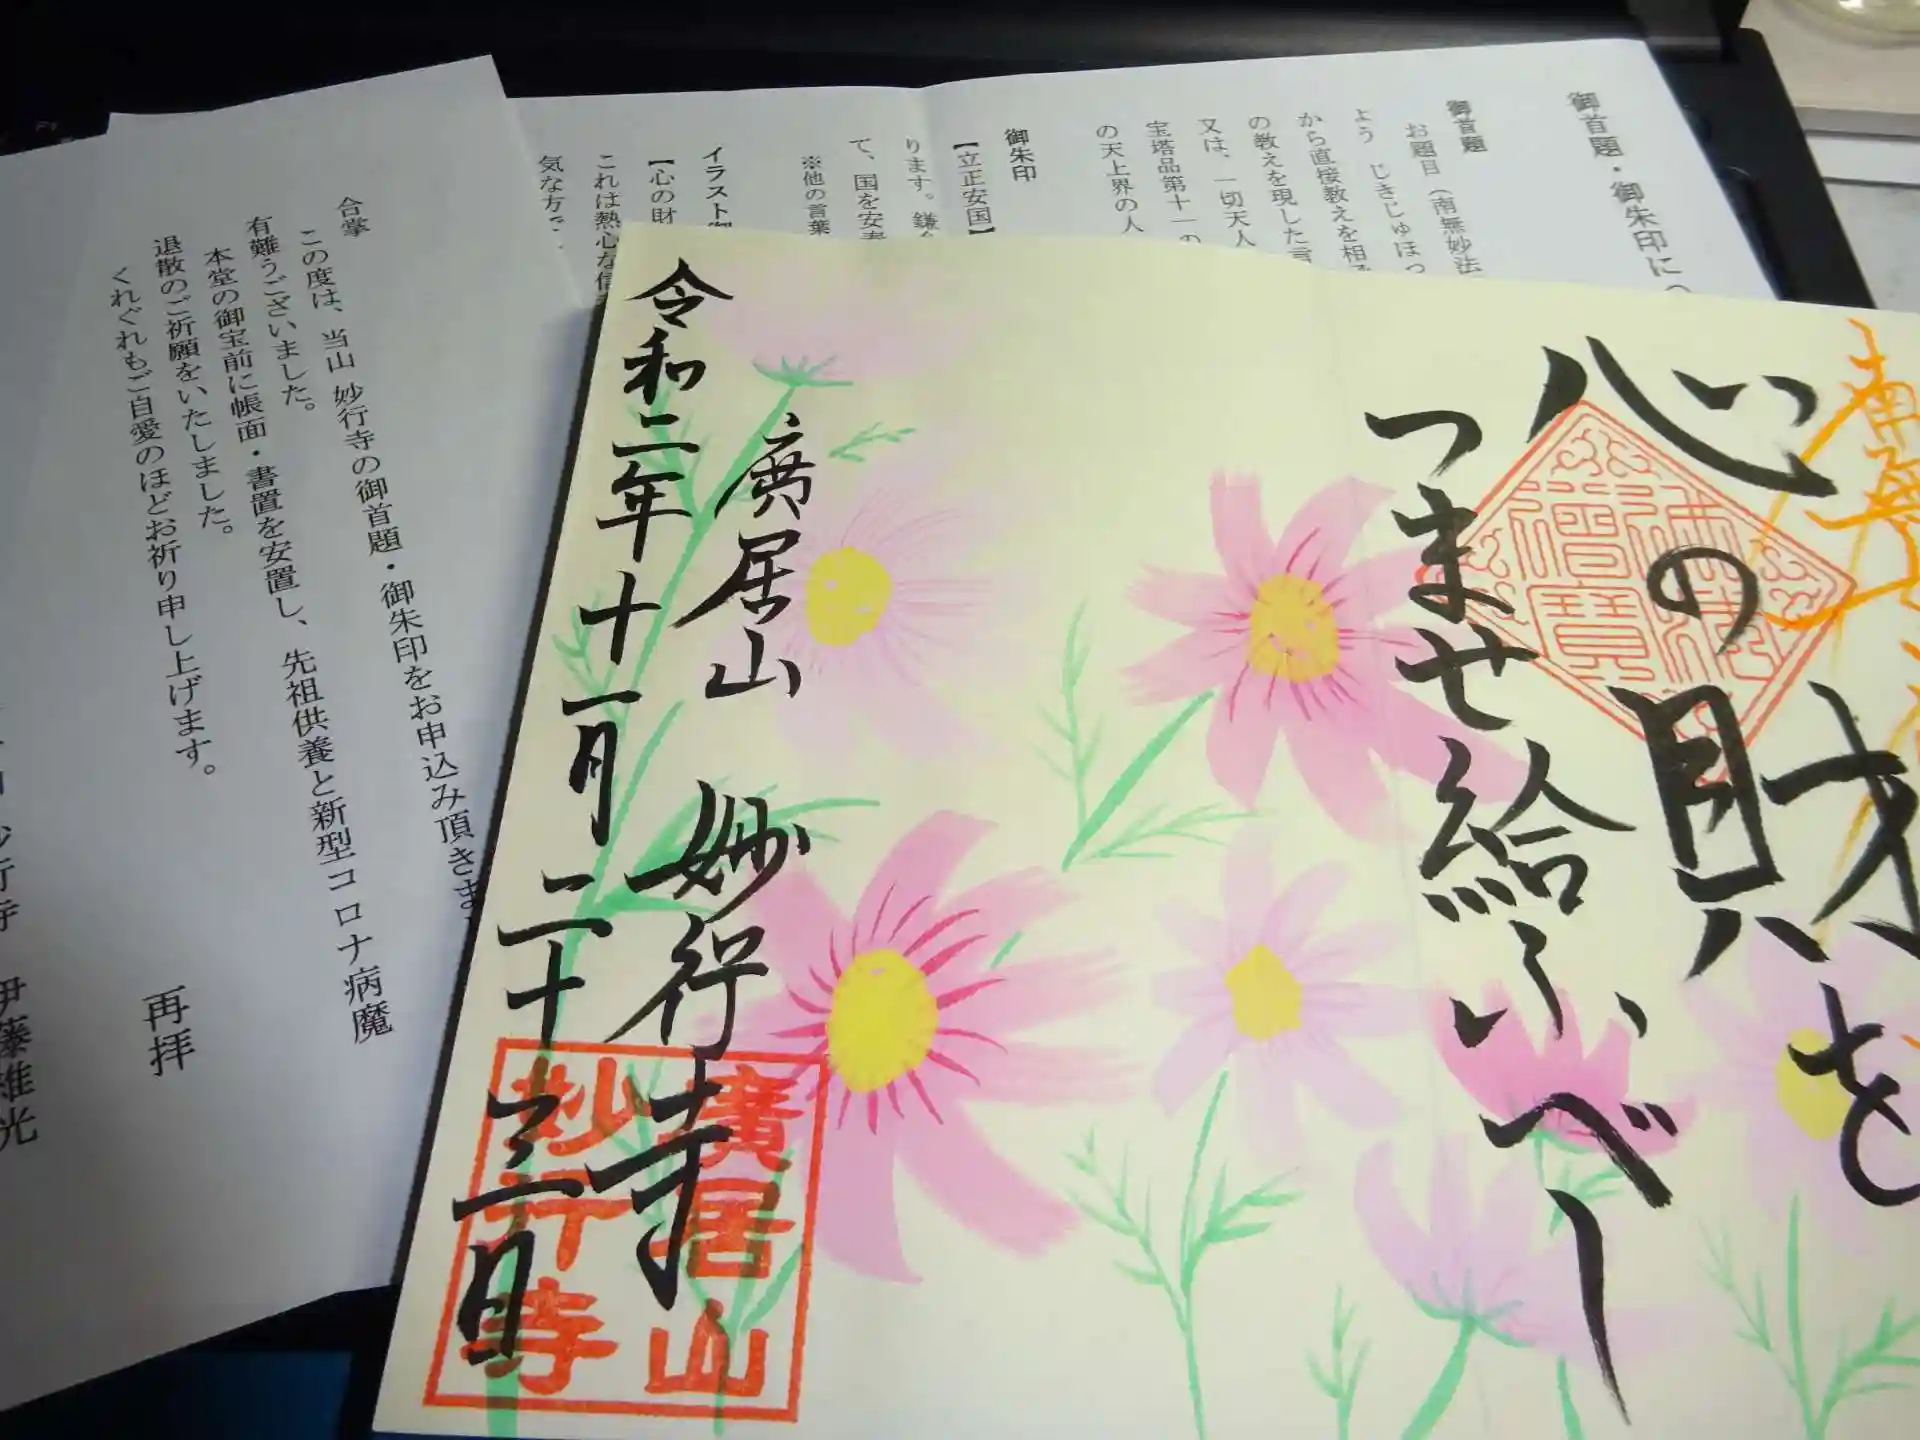 御首題・御朱印に
御首題
お題目（南無妙法
よう じきじゅほっ
から直接教えを相
の教えを現した言
又は、一切天人
宝塔品第十一の
の天上界の人
御朱印
【立正安国】
ります。鎌
て、国を安
※他の言葉
イラスト御
【心の財
これは熱心な信
気な方で、
合掌
この度は、当山 妙行寺の御首題・御朱印をお申込み頂きま
有難うございました。
本堂の御宝前に帳面・書置を安置し、先祖供養と新型コロナ病魔
退散のご祈願をいたしました。
くれぐれもご自愛のほどお祈り申し上げます。
再拝
妙行寺 伊藤雄光
南無
心の財を
つませ給ふべし
廣居山 妙行寺
令和二年十一月二十三日
廣居山
妙行寺